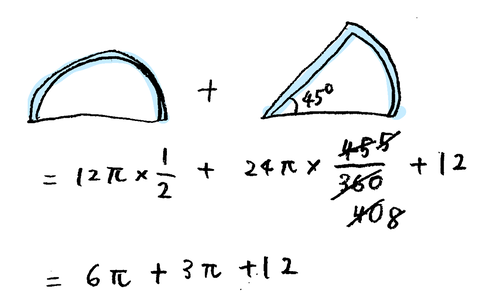 + 45°
= 12π × 1/2 + 24π × 45/360 + 12
= 6π + 3π + 12